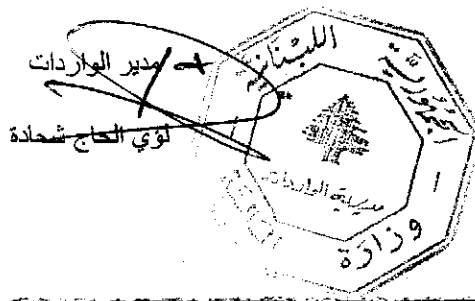 مدير الواردات
لؤي الحاج شحادة
الجمهورية
اللبنانية
وزارة
مديرية الواردات